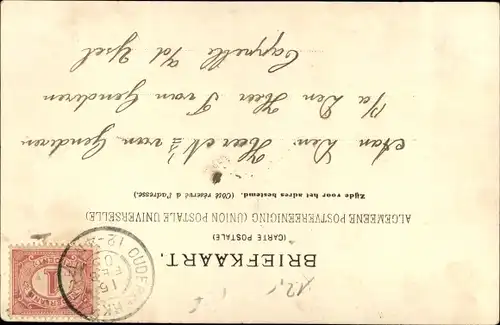 BRIEFKAART.
(CARTE POSTALE)
ALGEMEENE POSTVEREENIGING (UNION POSTALE UNIVERSELLE)
Zijde voor het adres bestemd. (Côté réservé à l'adresse.)
Aan Den Heer N. van Genderen
P/a Den Heer T van Genderen
Cappelle a/d Ysel
12,-